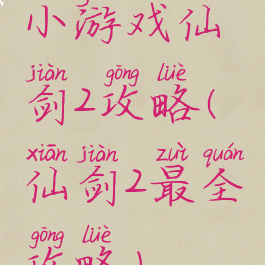 小游戏仙
jiàn gōng lüè
剑2攻略(
xiān jiàn zuì quán
仙剑2最全
gōng lüè
攻略)